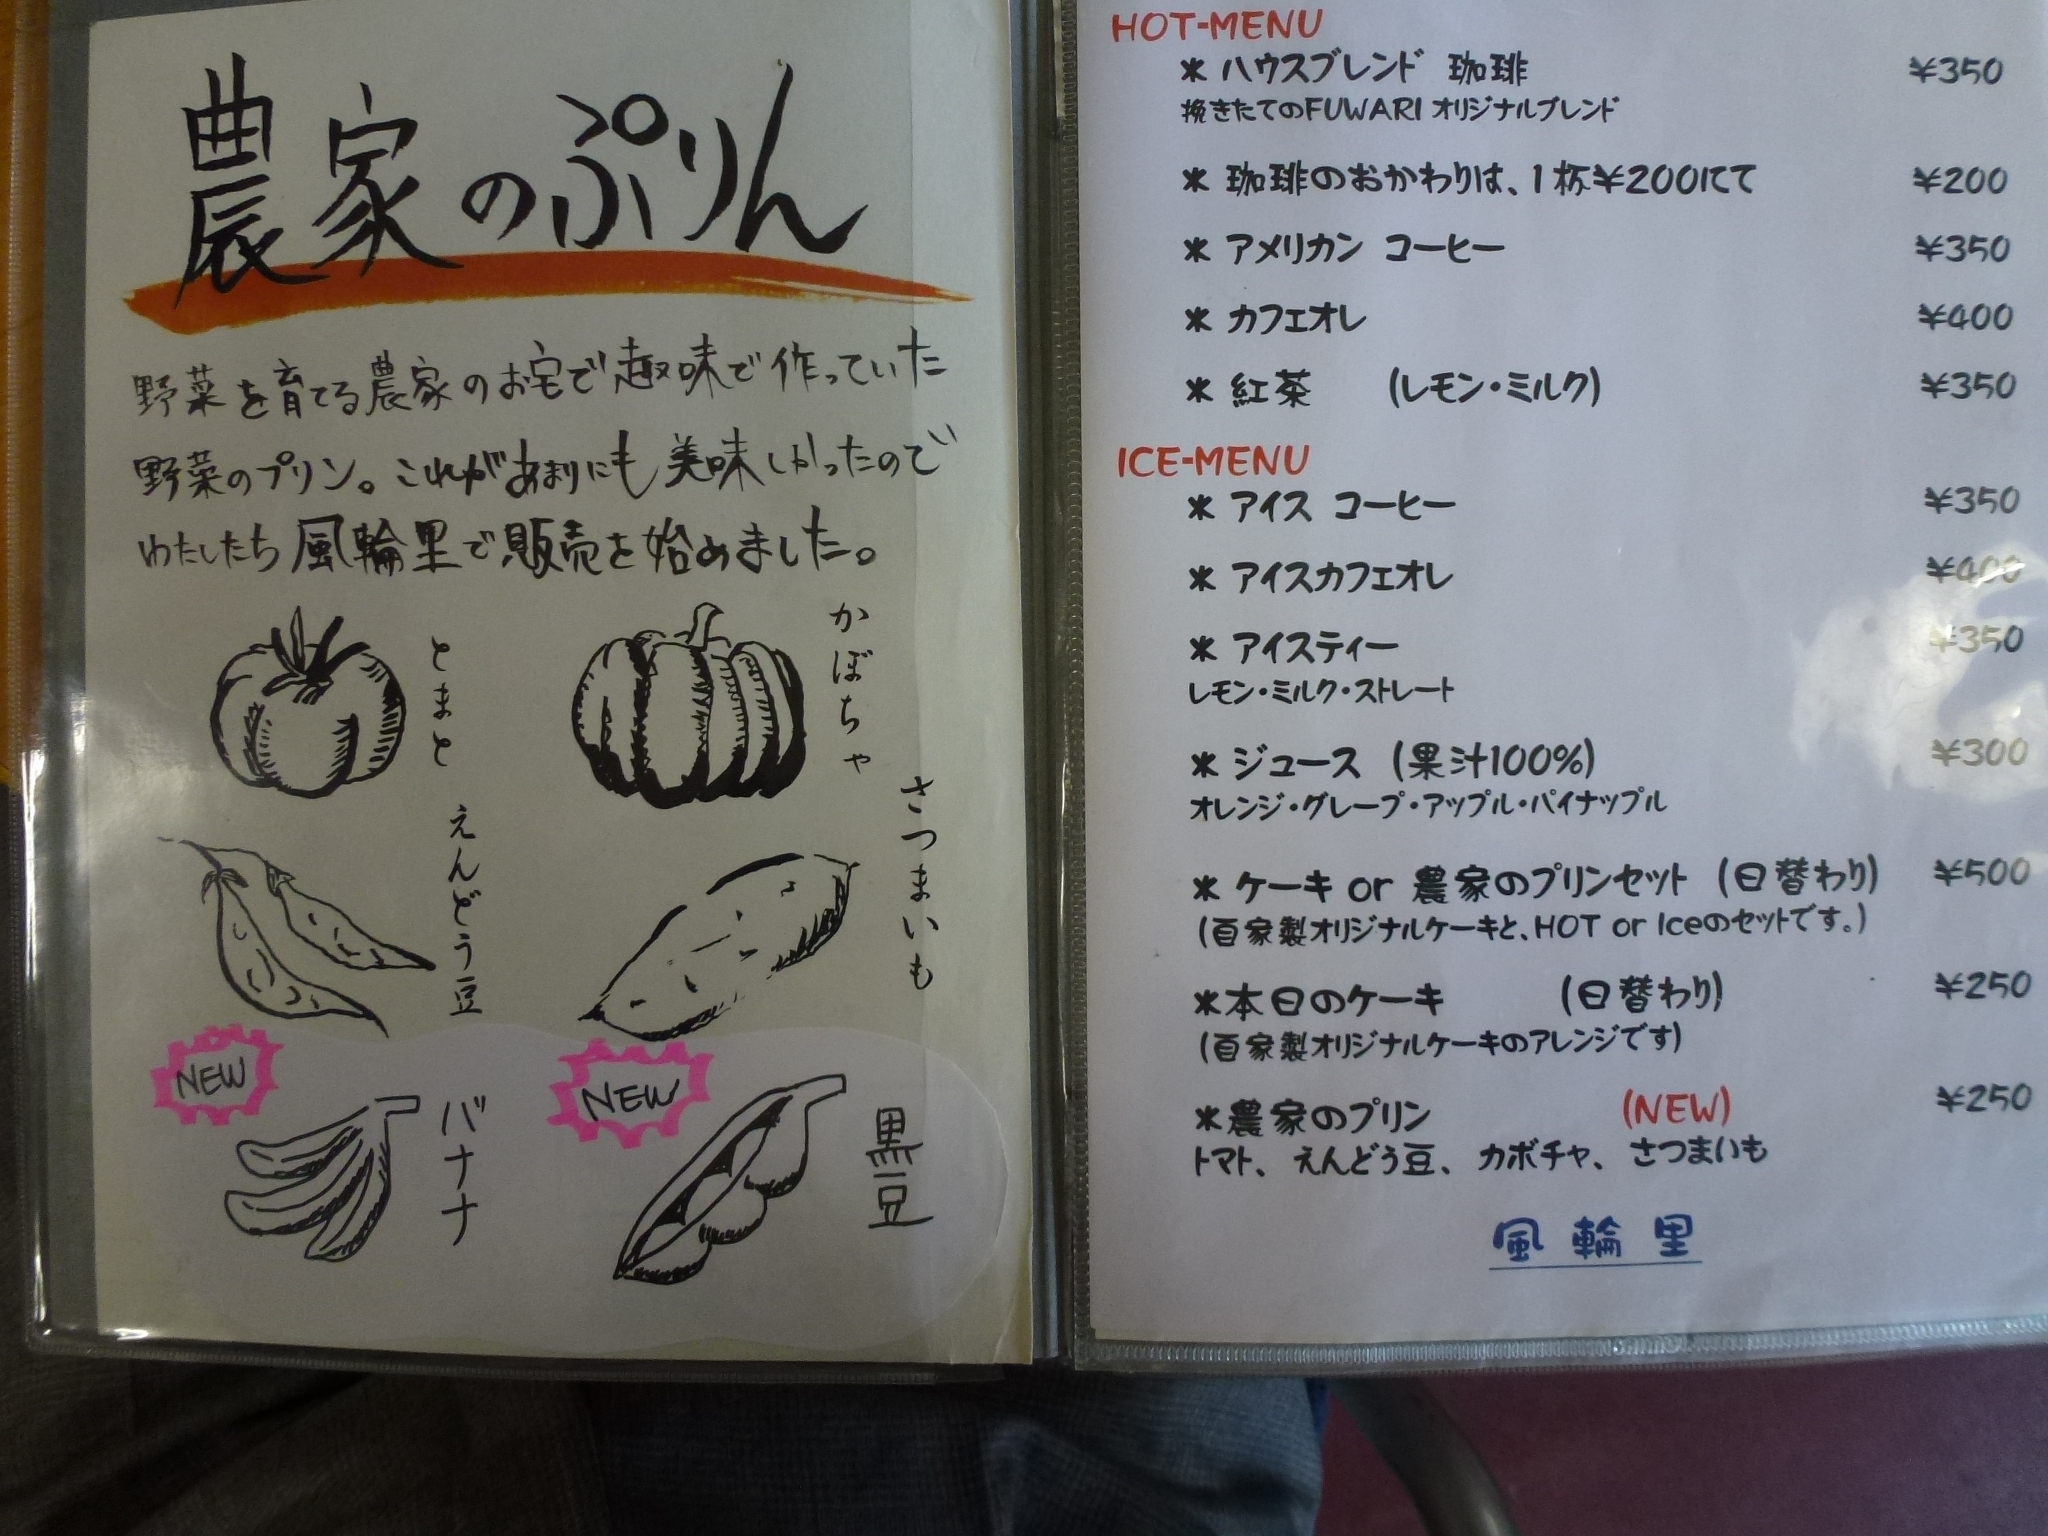 農家のぷりん
野菜を育てる農家のお宅で趣味で作っていた
野菜のプリン。これがあまりにも美味しかったので
わたしたち風輪里で販売を始めました。
とまと
かぼちゃ
えんどう豆
さつまいも
NEW
バナナ
NEW
黒豆
HOT-MENU
* ハウスブレンド 珈琲 ¥350
挽きたてのFUWARI オリジナルブレンド
* 珈琲のおかわりは、1杯¥200にて ¥200
* アメリカン コーヒー ¥350
* カフェオレ ¥400
* 紅茶 (レモン・ミルク) ¥350
ICE-MENU
* アイス コーヒー ¥350
* アイスカフェオレ ¥400
* アイスティー ¥350
レモン・ミルク・ストレート
* ジュース (果汁100%) ¥300
オレンジ・グレープ・アップル・パイナップル
* ケーキ or 農家のプリンセット (日替わり) ¥500
(自家製オリジナルケーキと、HOT or Iceのセットです。)
*本日のケーキ (日替わり) ¥250
(自家製オリジナルケーキのアレンジです)
*農家のプリン (NEW) ¥250
トマト、えんどう豆、カボチャ、さつまいも
風輪里